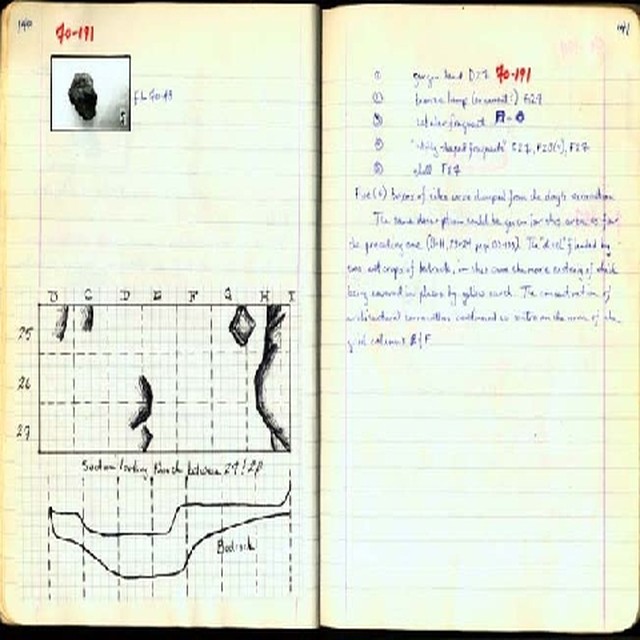 140
70-191
B C D E F G H I
25
26
27
Section looking North between 27/28
Bedrock
141
① gorgon head D27 70-191
② bronze lamp (ornament?) G27
③ fragment
④ "shaped fragments" C27, F27
⑤ shell F27
Five (5) boxes of were dumped from the day's excavation
The same description could be given for this area as for
the preceding one (B-H, 23-24 pp. ). The "disc" flanked by
two outcrops of bedrock, in this case the more eastern of which
being covered in places by yellow earth. The concentration of
architectural continued in the area of the
grid columns E/F